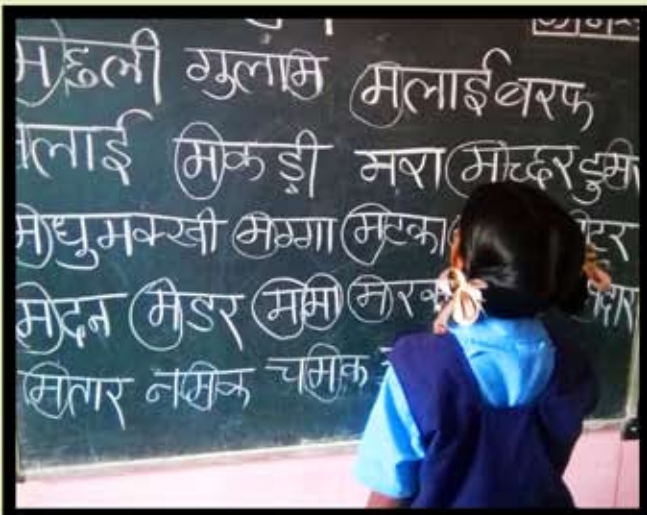 मछली गुलाम मलाईबरफ
लाई मकड़ी मरा मच्छर डुम
मधुमक्खी मग्गा मटका टर
मदन मडर मामा मरक दार
मतार नमक चमक